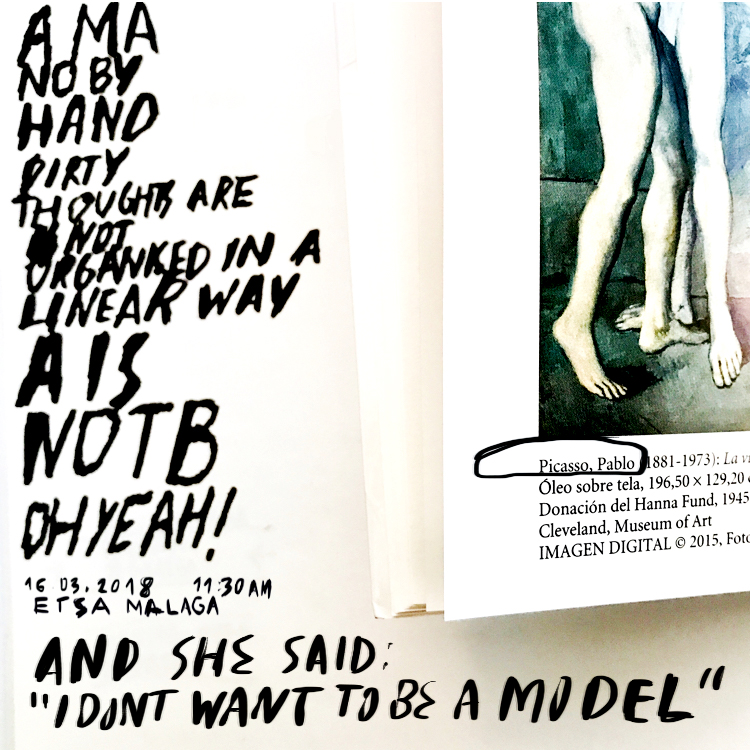 A MA
NO BY
HAND
DIRTY
THOUGHTS ARE
NOT
ORGANIZED IN A
LINEAR WAY
A IS
NOT B
OH YEAH!
16.03.2018 11:30 AM
ETSA MALAGA
AND SHE SAID:
"I DONT WANT TO BE A MODEL"
Picasso, Pablo (1881-1973): La vi
Óleo sobre tela, 196,50 × 129,20
Donación del Hanna Fund, 1945
Cleveland, Museum of Art
IMAGEN DIGITAL © 2015, Foto